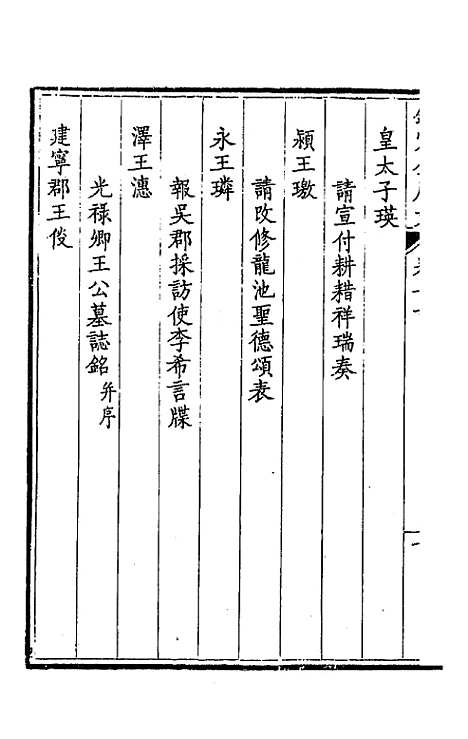 皇太子瑛
請宣付耕耤祥瑞奏
潁王璬
請改修龍池聖德頌表
永王璘
報吳郡採訪使李希言牒
澤王漶
光祿卿王公墓誌銘并序
建寧郡王倓